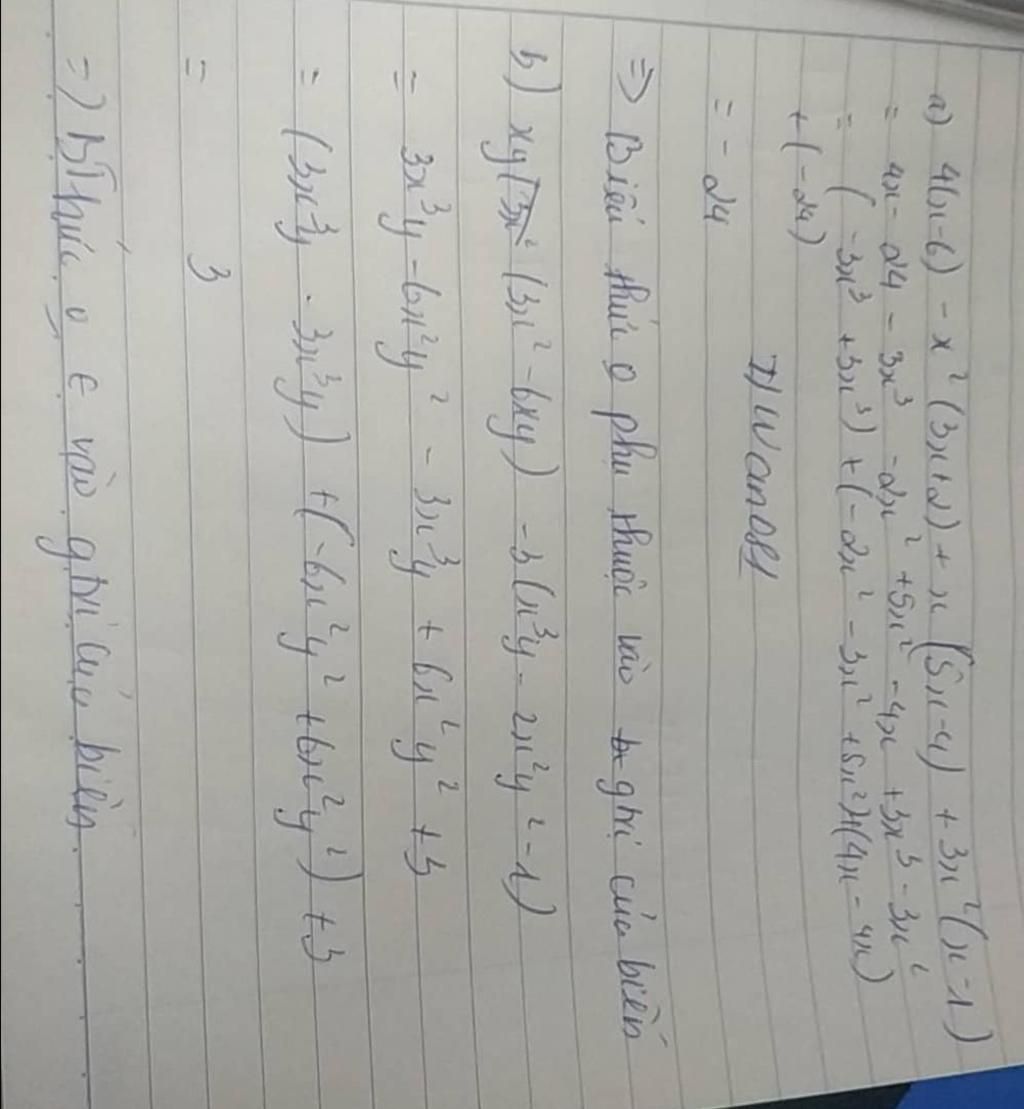 a) 4(x-6) - x² (3x+2) + x (5x-4) + 3x²(x-1)
= 4x - 24 - 3x³ - 2x² + 5x² - 4x + 3x³ - 3x²
= ( -3x³ + 3x³) + (-2x² - 3x² + 5x²)+(4x - 4x)
+ (-24)
= - 24
⇒ Biểu thức o phụ thuộc vào gtrị của biến
b) xy (3x² - 6xy) - 3(x³y - 2x²y² - 1)
= 3x³y - 6x²y² - 3x³y + 6x²y² + 3
= (3x³y - 3x³y) + (-6x²y² + 6x²y²) + 3
= 3
=) BThức o ∈ vào gtrị của biến